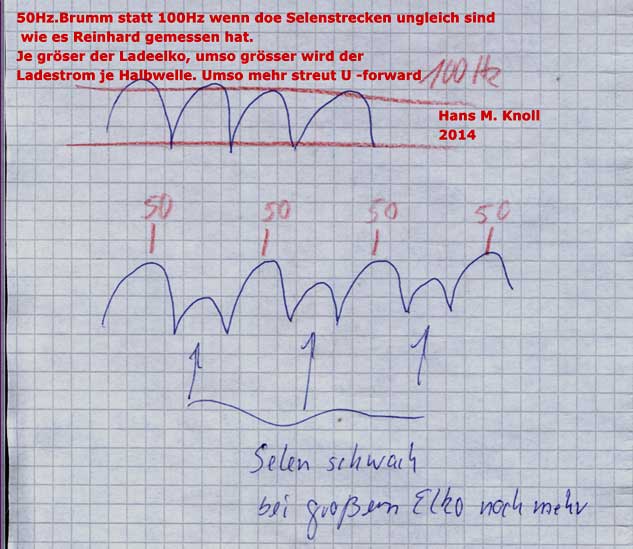 50Hz.Brumm statt 100Hz wenn doe Selenstrecken ungleich sind
wie es Reinhard gemessen hat.
Je gröser der Ladeelko, umso grösser wird der
Ladestrom je Halbwelle. Umso mehr streut U -forward
100 Hz
Hans M. Knoll
2014
50 50 50 50
Selen schwach
bei großem Elko noch mehr